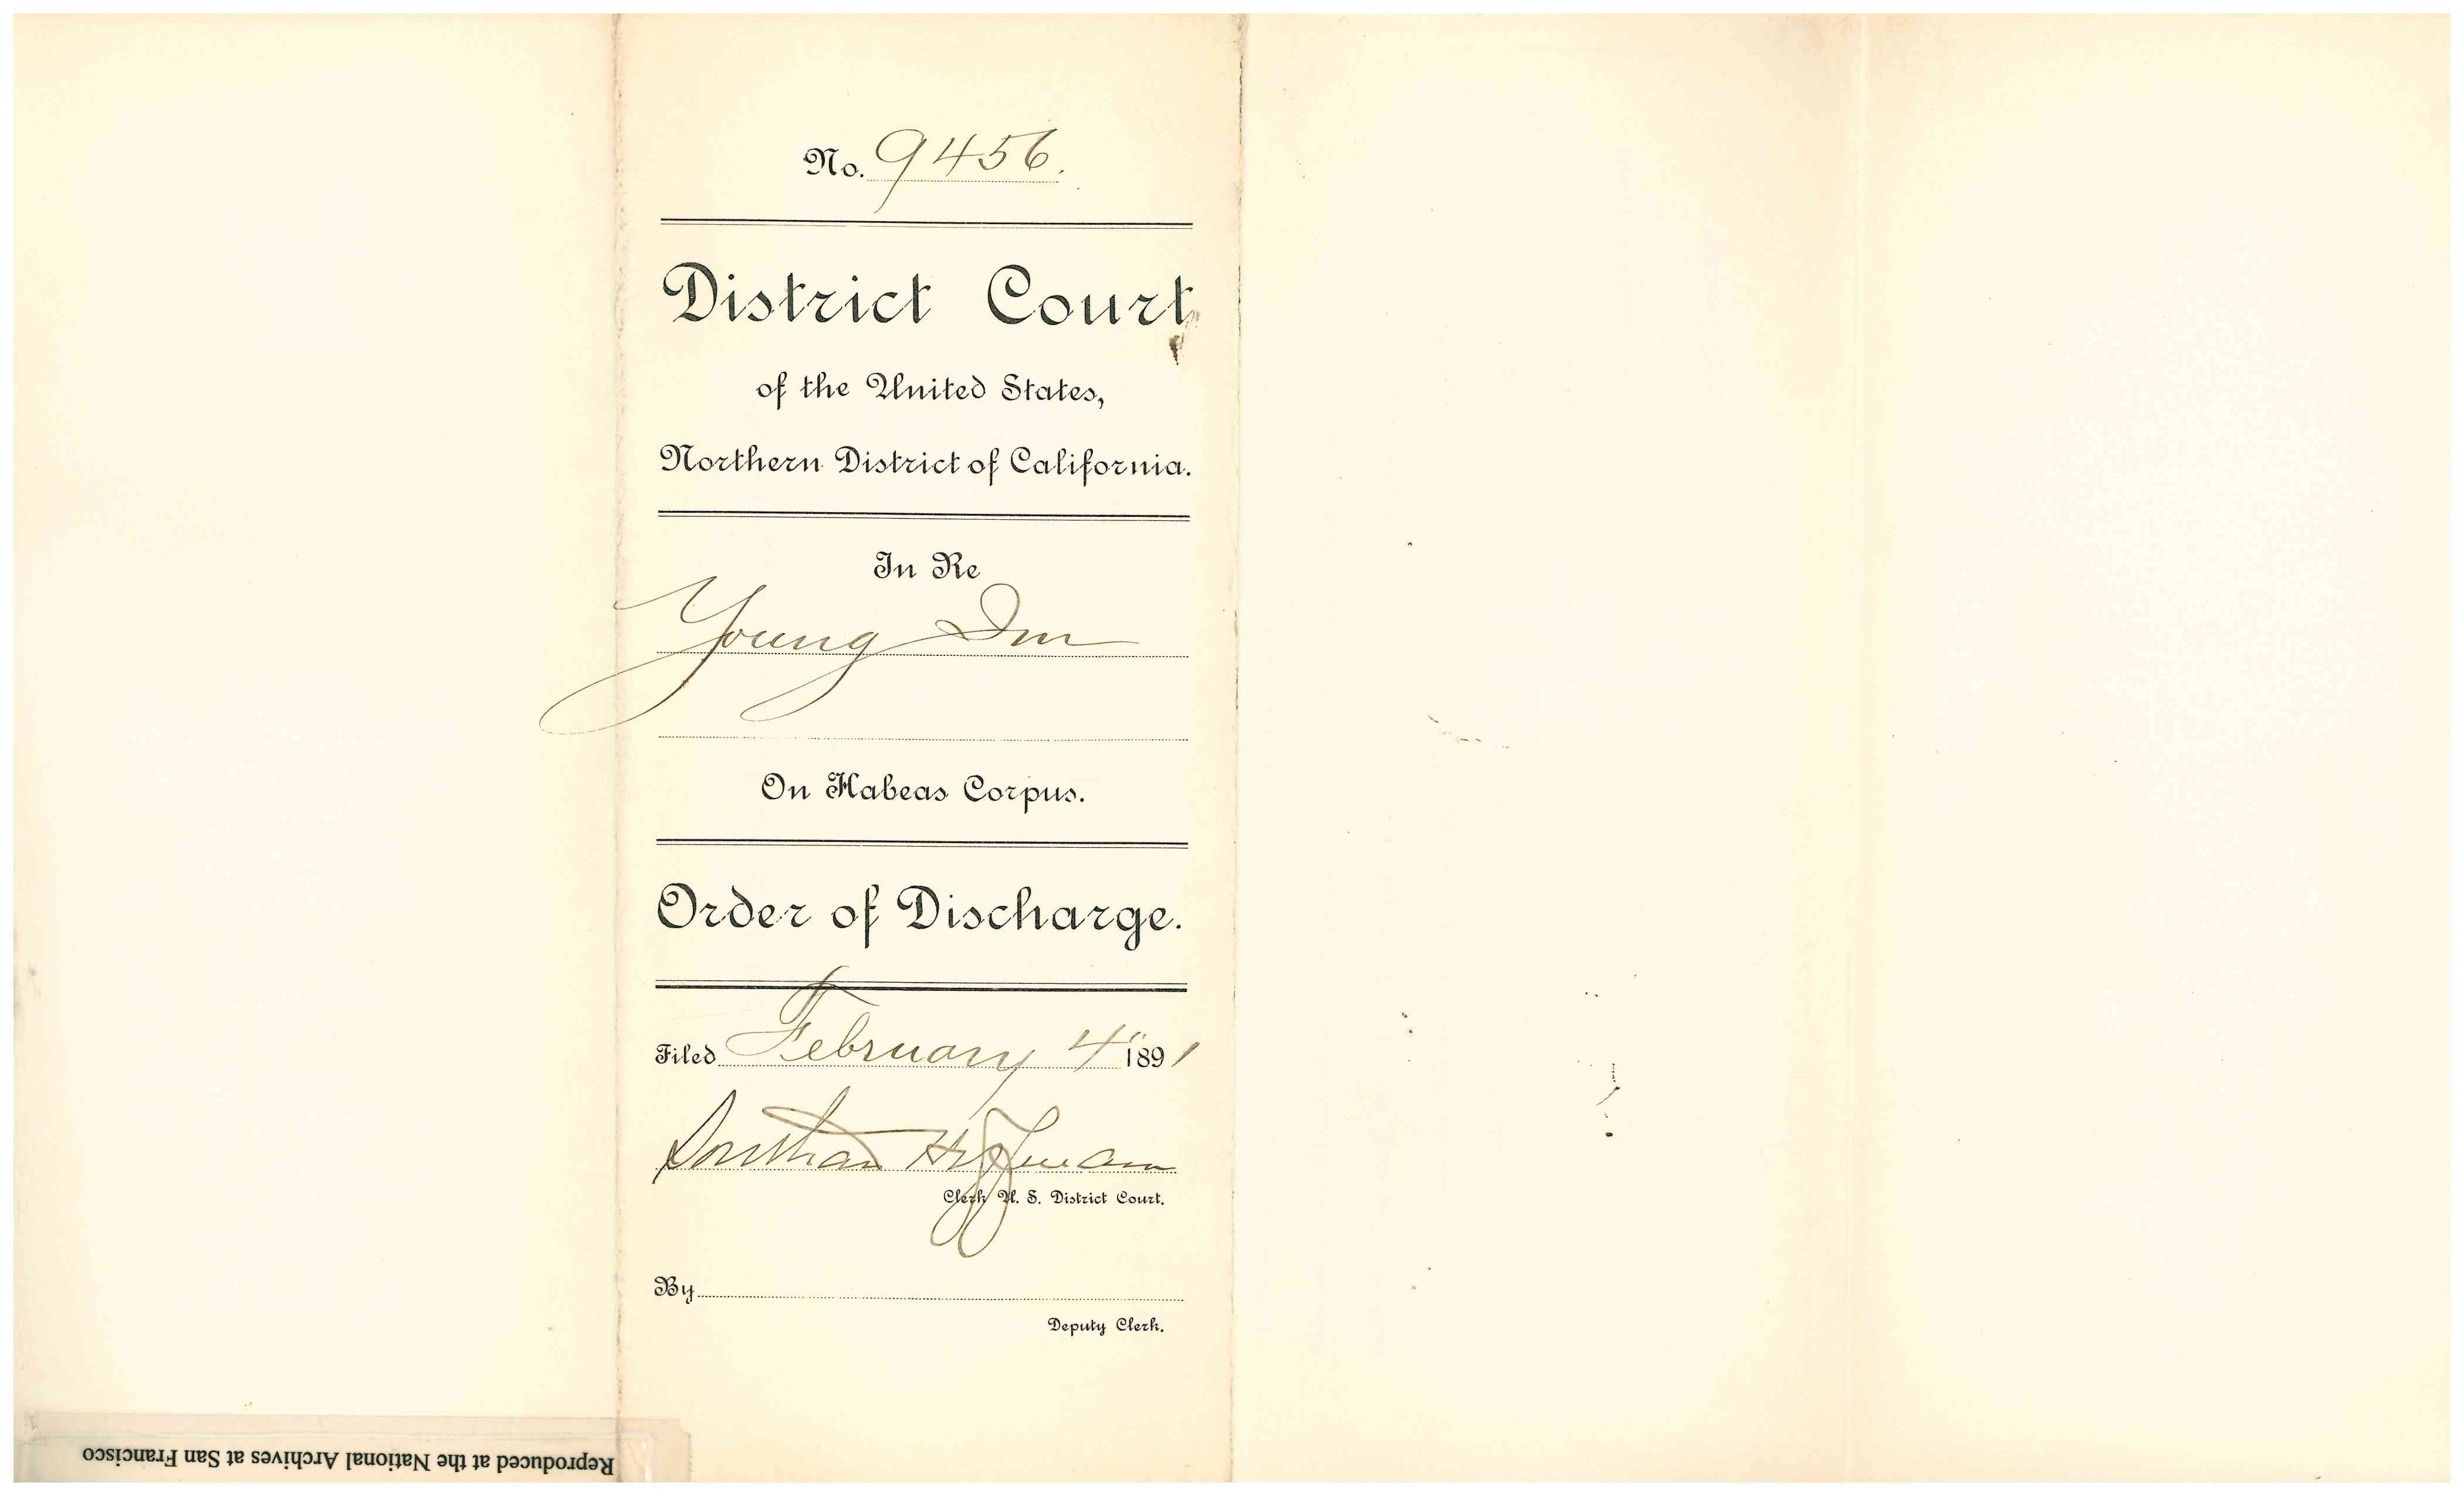 No. 9456.
District Court
of the United States,
Northern District of California.
In Re
Young Im
On Habeas Corpus.
Order of Discharge.
Filed February 4" 1891
Southard Hoffman
Clerk U. S. District Court.
By
Deputy Clerk.
Reproduced at the National Archives at San Francisco